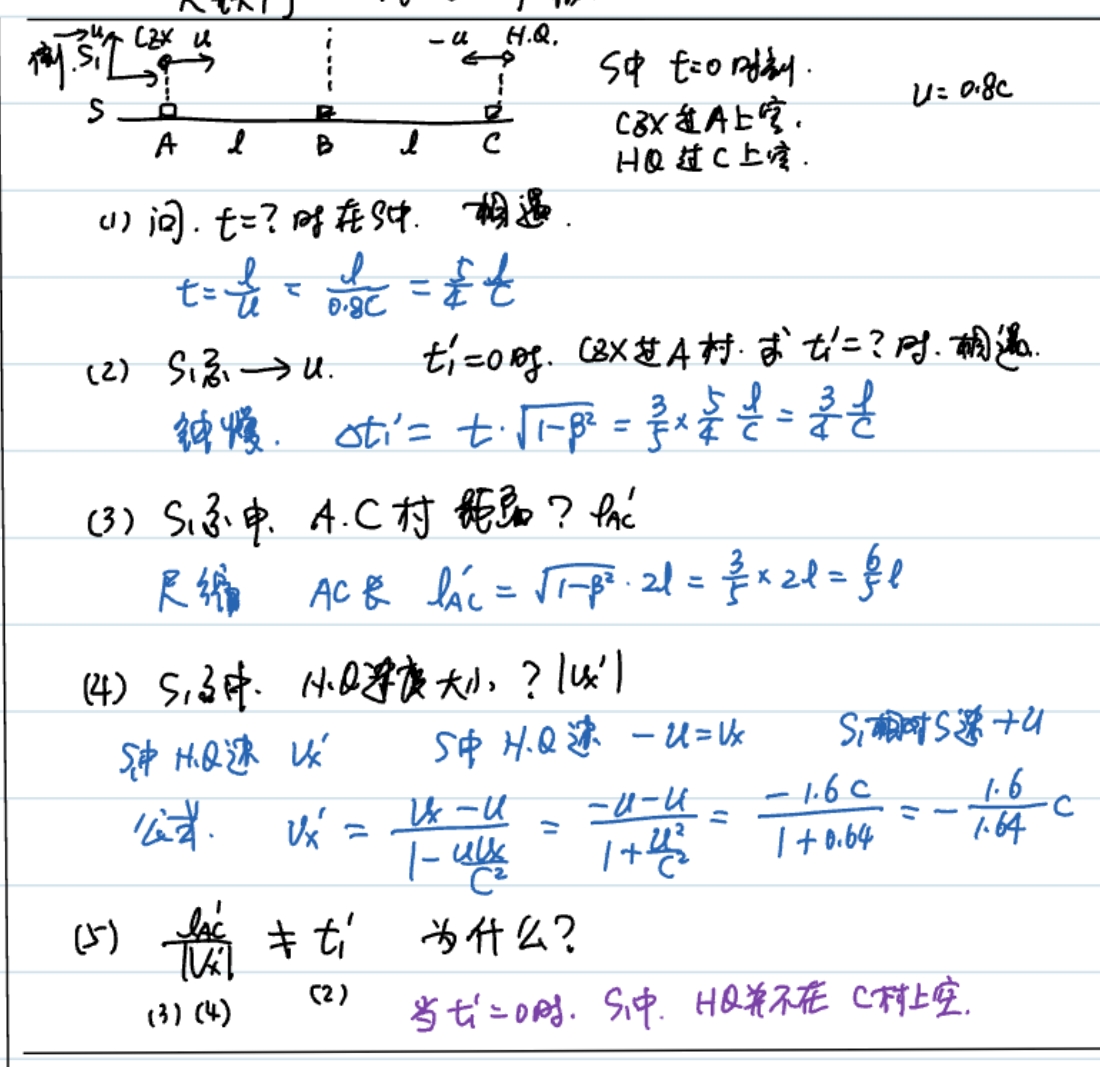 S₁' u CZX u -u H.Q.
S中 t=0时刻.
u=0.8c
CZX过A上空.
HQ过C上空.
S
A l B l C
(1) 问. t=?时在S中. 相遇.
t=l/u = l/0.8C = 5/4 l/c
(2) S₁系→u. t₁'=0时. CZX过A村. 求t₁'=?时. 相遇.
钟慢. Δt₁'= t·√(1-β²) = 3/5 × 5/4 l/c = 3/4 l/c
(3) S₁系中. A.C村距离? l_AC'
尺缩 AC长 l_AC' = √(1-β²)·2l = 3/5 × 2l = 6/5 l
(4) S₁系中. H.Q速度大小? |Vx'|
S₁中 H.Q速 Vx' S中 H.Q速 -u=Vx S₁相对S速+u
公式. Vx' = (Vx-u)/(1-uVx/C²) = (-u-u)/(1+u²/C²) = -1.6C/(1+0.64) = -1.6/1.64 C
(5) l_AC'/|Vx'| ≠ t₁' 为什么?
(3) (4) (2)
当t₁'=0时. S₁中. HQ并不在C村上空.